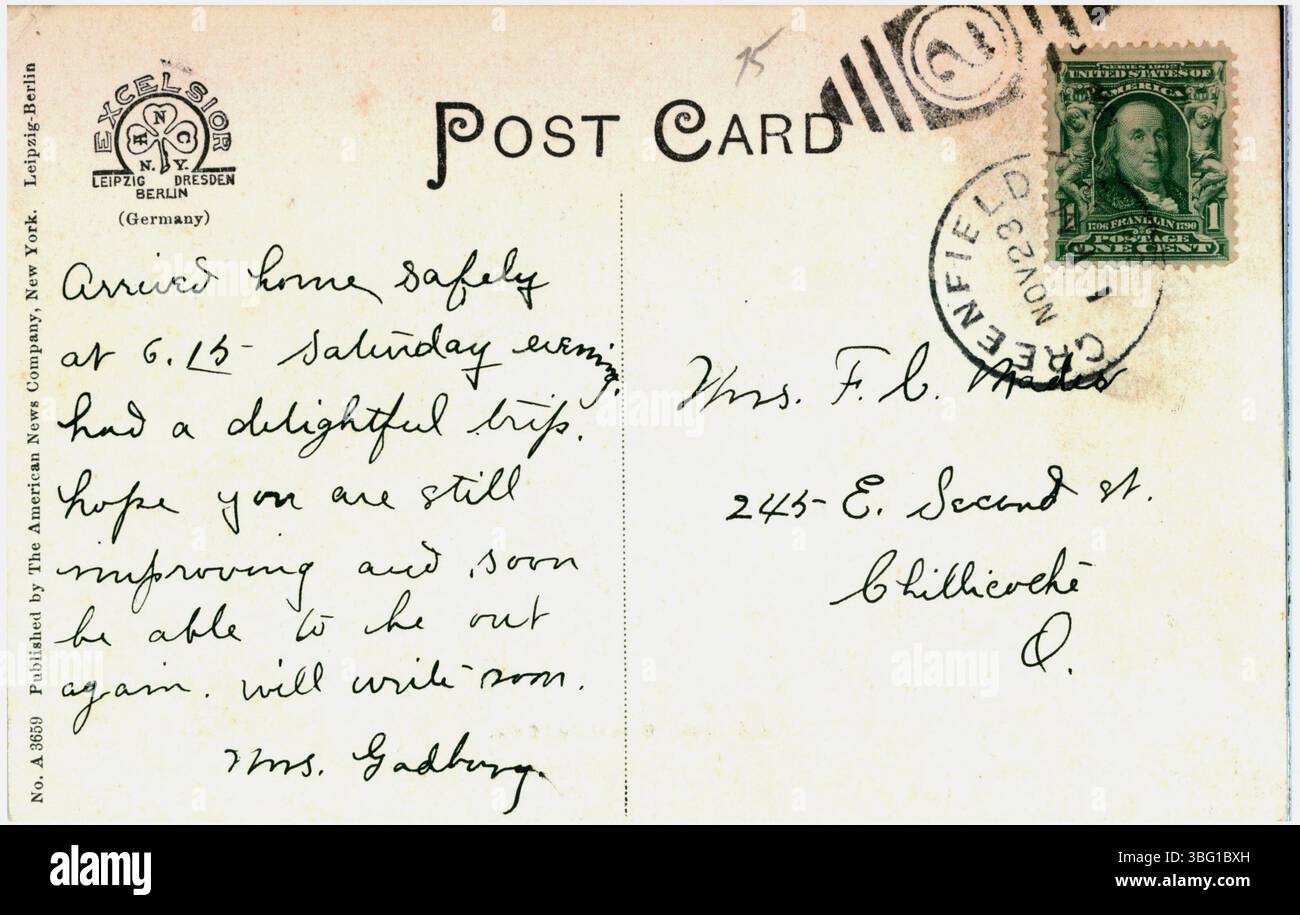 EXCELSIOR
N
A C
N. Y.
LEIPZIG DRESDEN
BERLIN
(Germany)
POST CARD
75
2
SERIES 1902
UNITED STATES OF
AMERICA
1 1
1706 FRANKLIN 1790
POSTAGE
ONE CENT
GREENFIELD
NOV 23
1
No. A 3659 Published by The American News Company, New York. Leipzig-Berlin
Arrived home safely
at 6.15 Saturday evening.
had a delightful trip.
hope you are still
improving and soon
be able to be out
again. will write soon.
Mrs. Gadbury.
Mrs. F. C.
245 E. Second st.
Chillicothe
O.
alamy
Image ID: 3BG1BXH
www.alamy.com